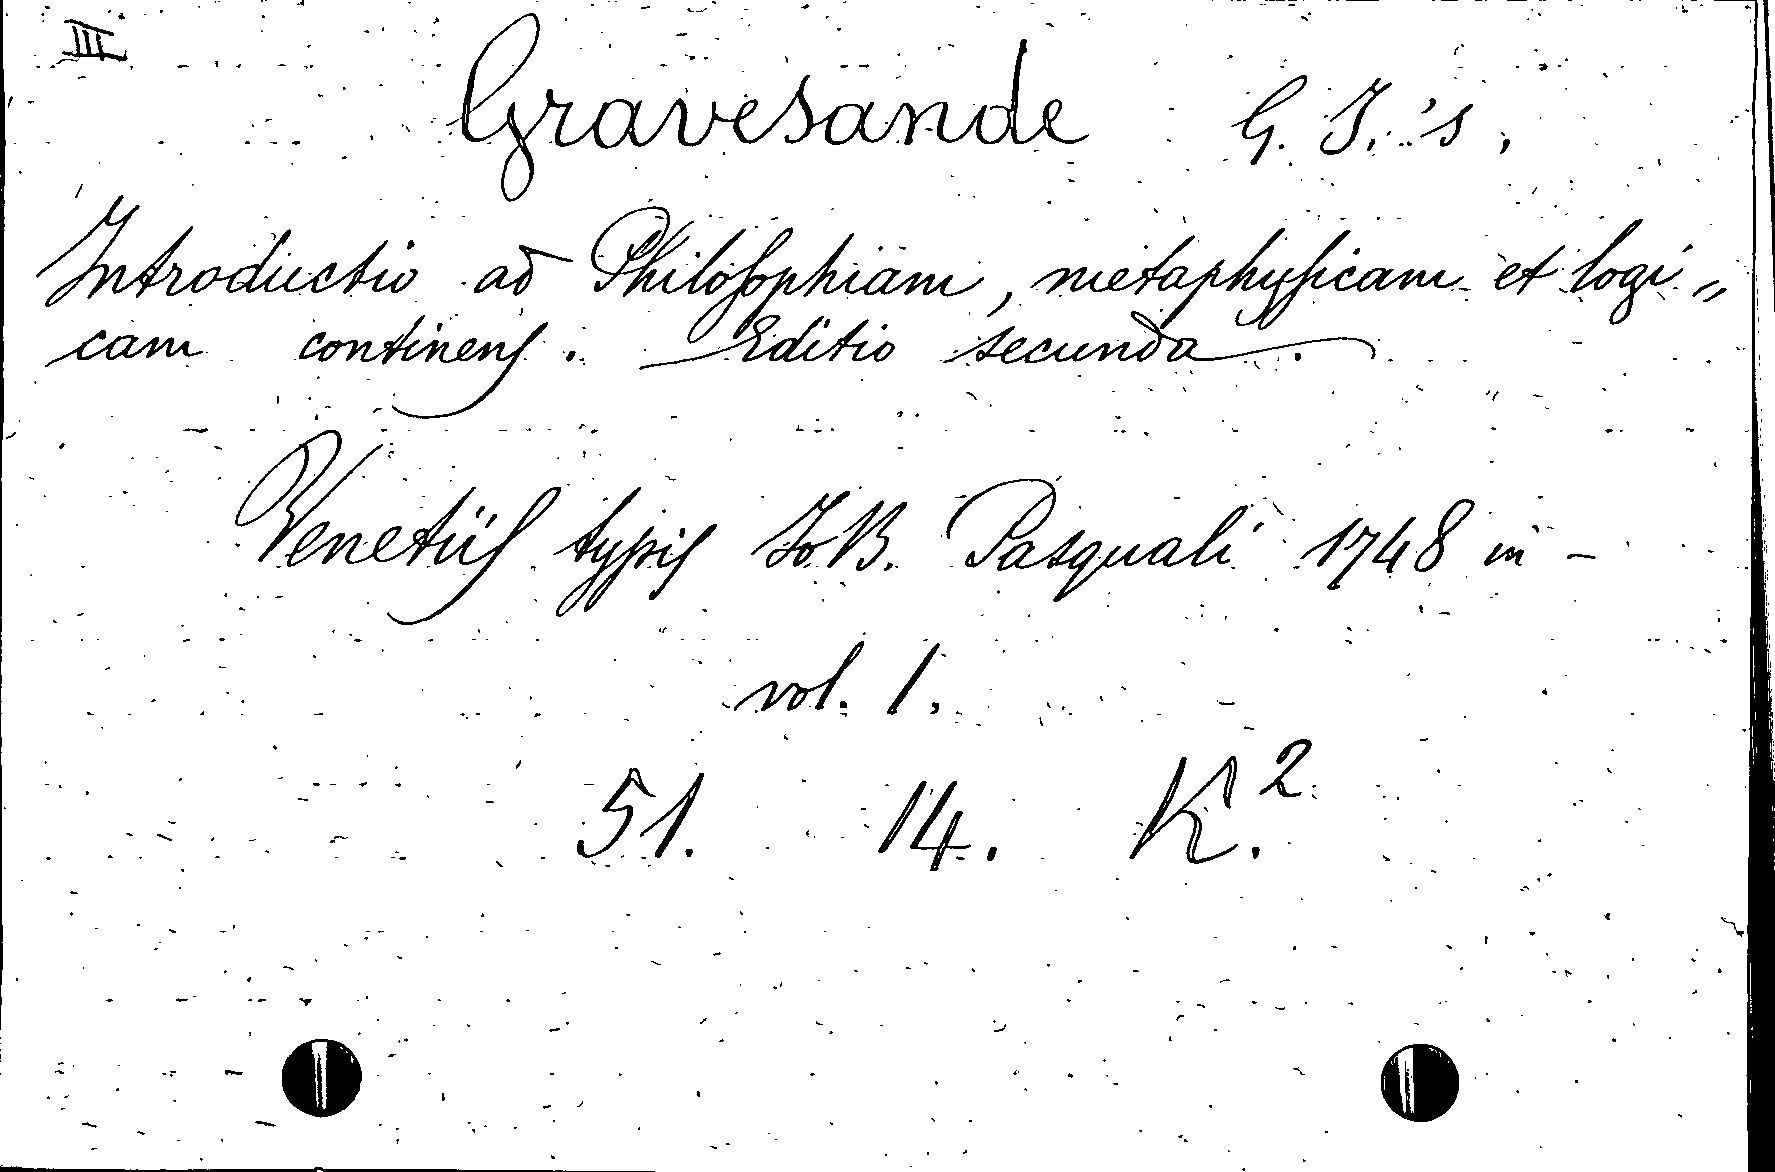 III
Gravesande G. J. 's,
Introductio ad Philosophiam, metaphysicam et logi„
cam continens. Editio secunda.
Venetiis typis Jo B. Pasquali 1748 in –
vol. 1.
51. 14. K.²